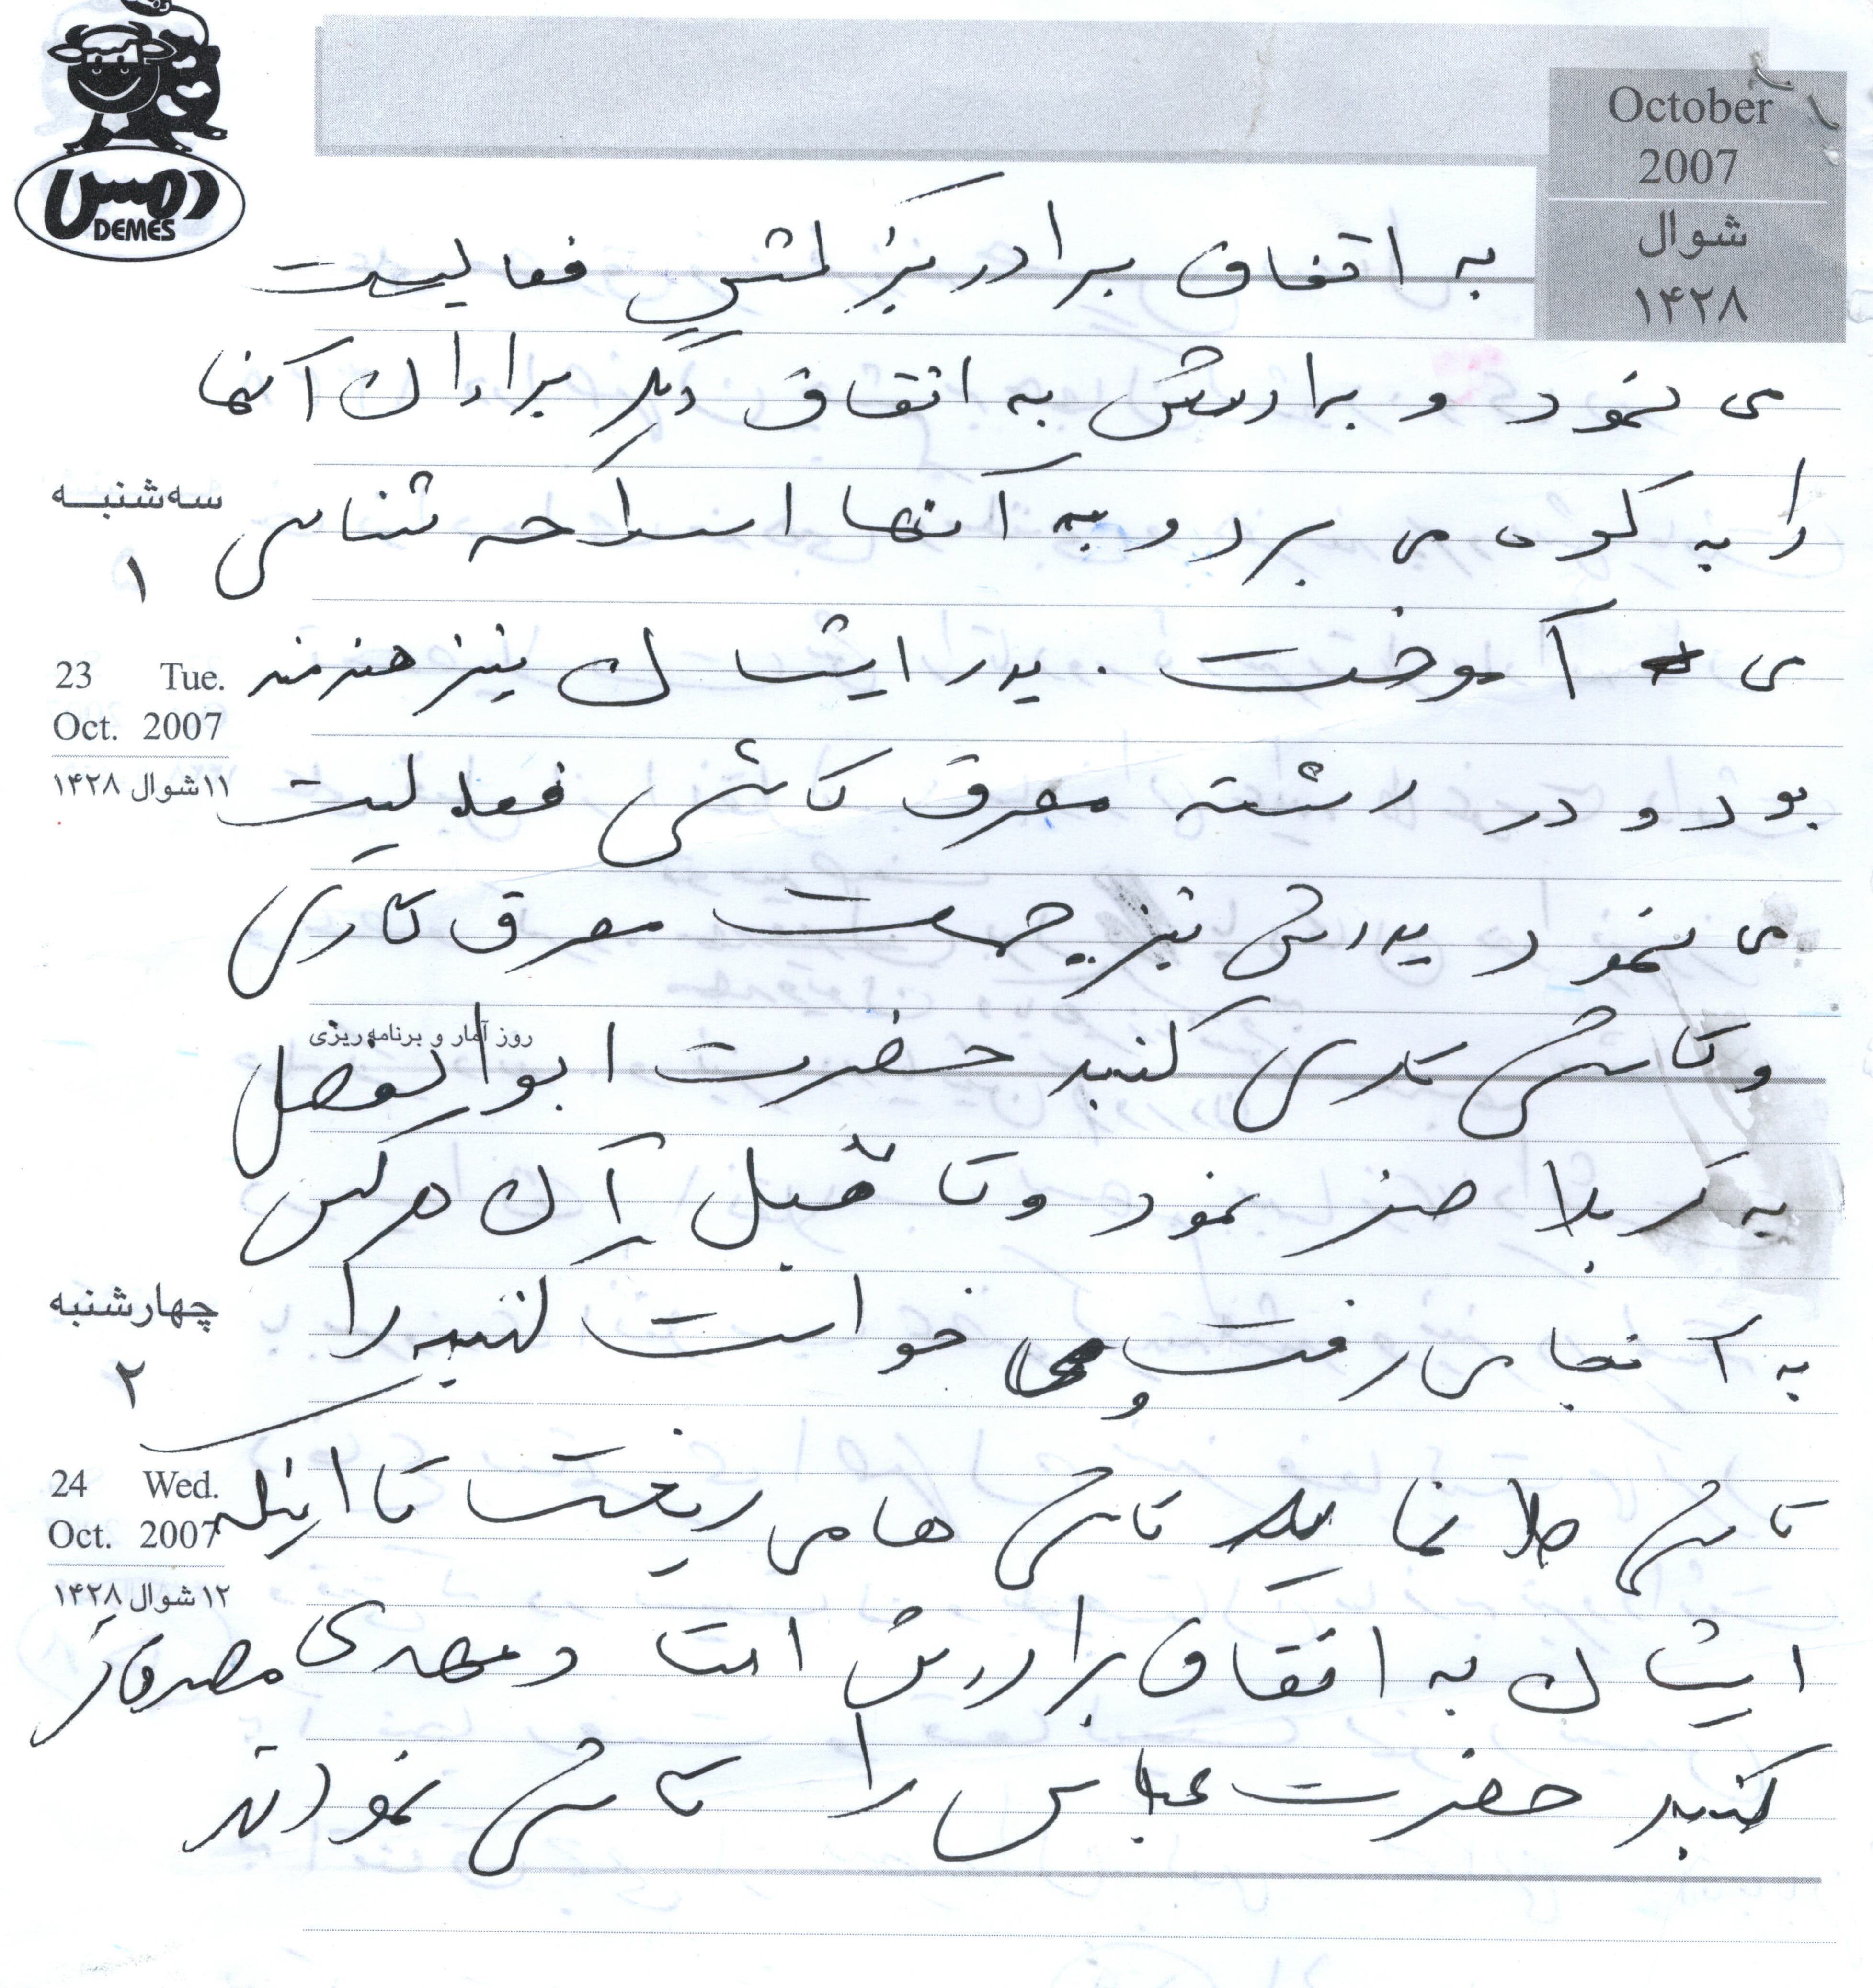 دمس
DEMES
October
2007
شوال
۱۴۲۸
به اتفاق برادر بزرگش فعالیت
می نمود و برادرش به اتفاق دیگر برادران آنها
را به کوه می برد و به آنها اسلحه شناسی
سه‌شنبه
۱
می آموخت . پدر ایشان نیز هنرمند
23 Tue.
Oct. 2007
بود و در رشته معرق کاشی فعالیت
۱۱ شوال ۱۴۲۸
می نمود پدرش نیز جهت معرق کاری
روز آمار و برنامه ریزی
و کاشی کاری گنبد حضرت ابوالفضل
به کربلا نمود و تا قبل آن هرکس
به آنجا می رفت و می خواست گنبد را
چهارشنبه
۲
کاشی طلا نماید کاشی ها می ریخت تا اینکه
24 Wed.
Oct. 2007
۱۲ شوال ۱۴۲۸
ایشان به اتفاق برادرش و مهدی
گنبد حضرت عباس را کاشی نمودند